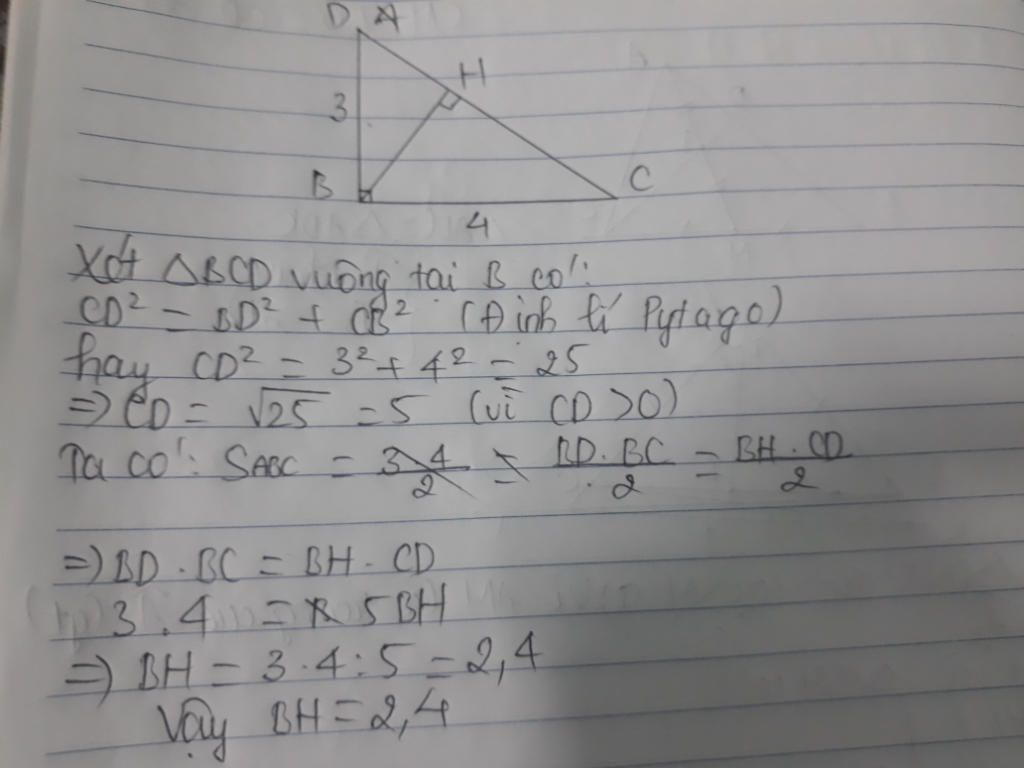 D A
H
3
B
C
4
Xét △BCD vuông tại B có:
CD² = BD² + CB² (Định lí Pytago)
hay CD² = 3² + 4² = 25
=> CD = √25 = 5 (vì CD > 0)
Ta có: SABC = 3 4/2 = BD.BC/2 = BH.CD/2
=> BD . BC = BH . CD
3 . 4 = 5BH
=> BH = 3.4:5 = 2,4
Vậy BH = 2,4